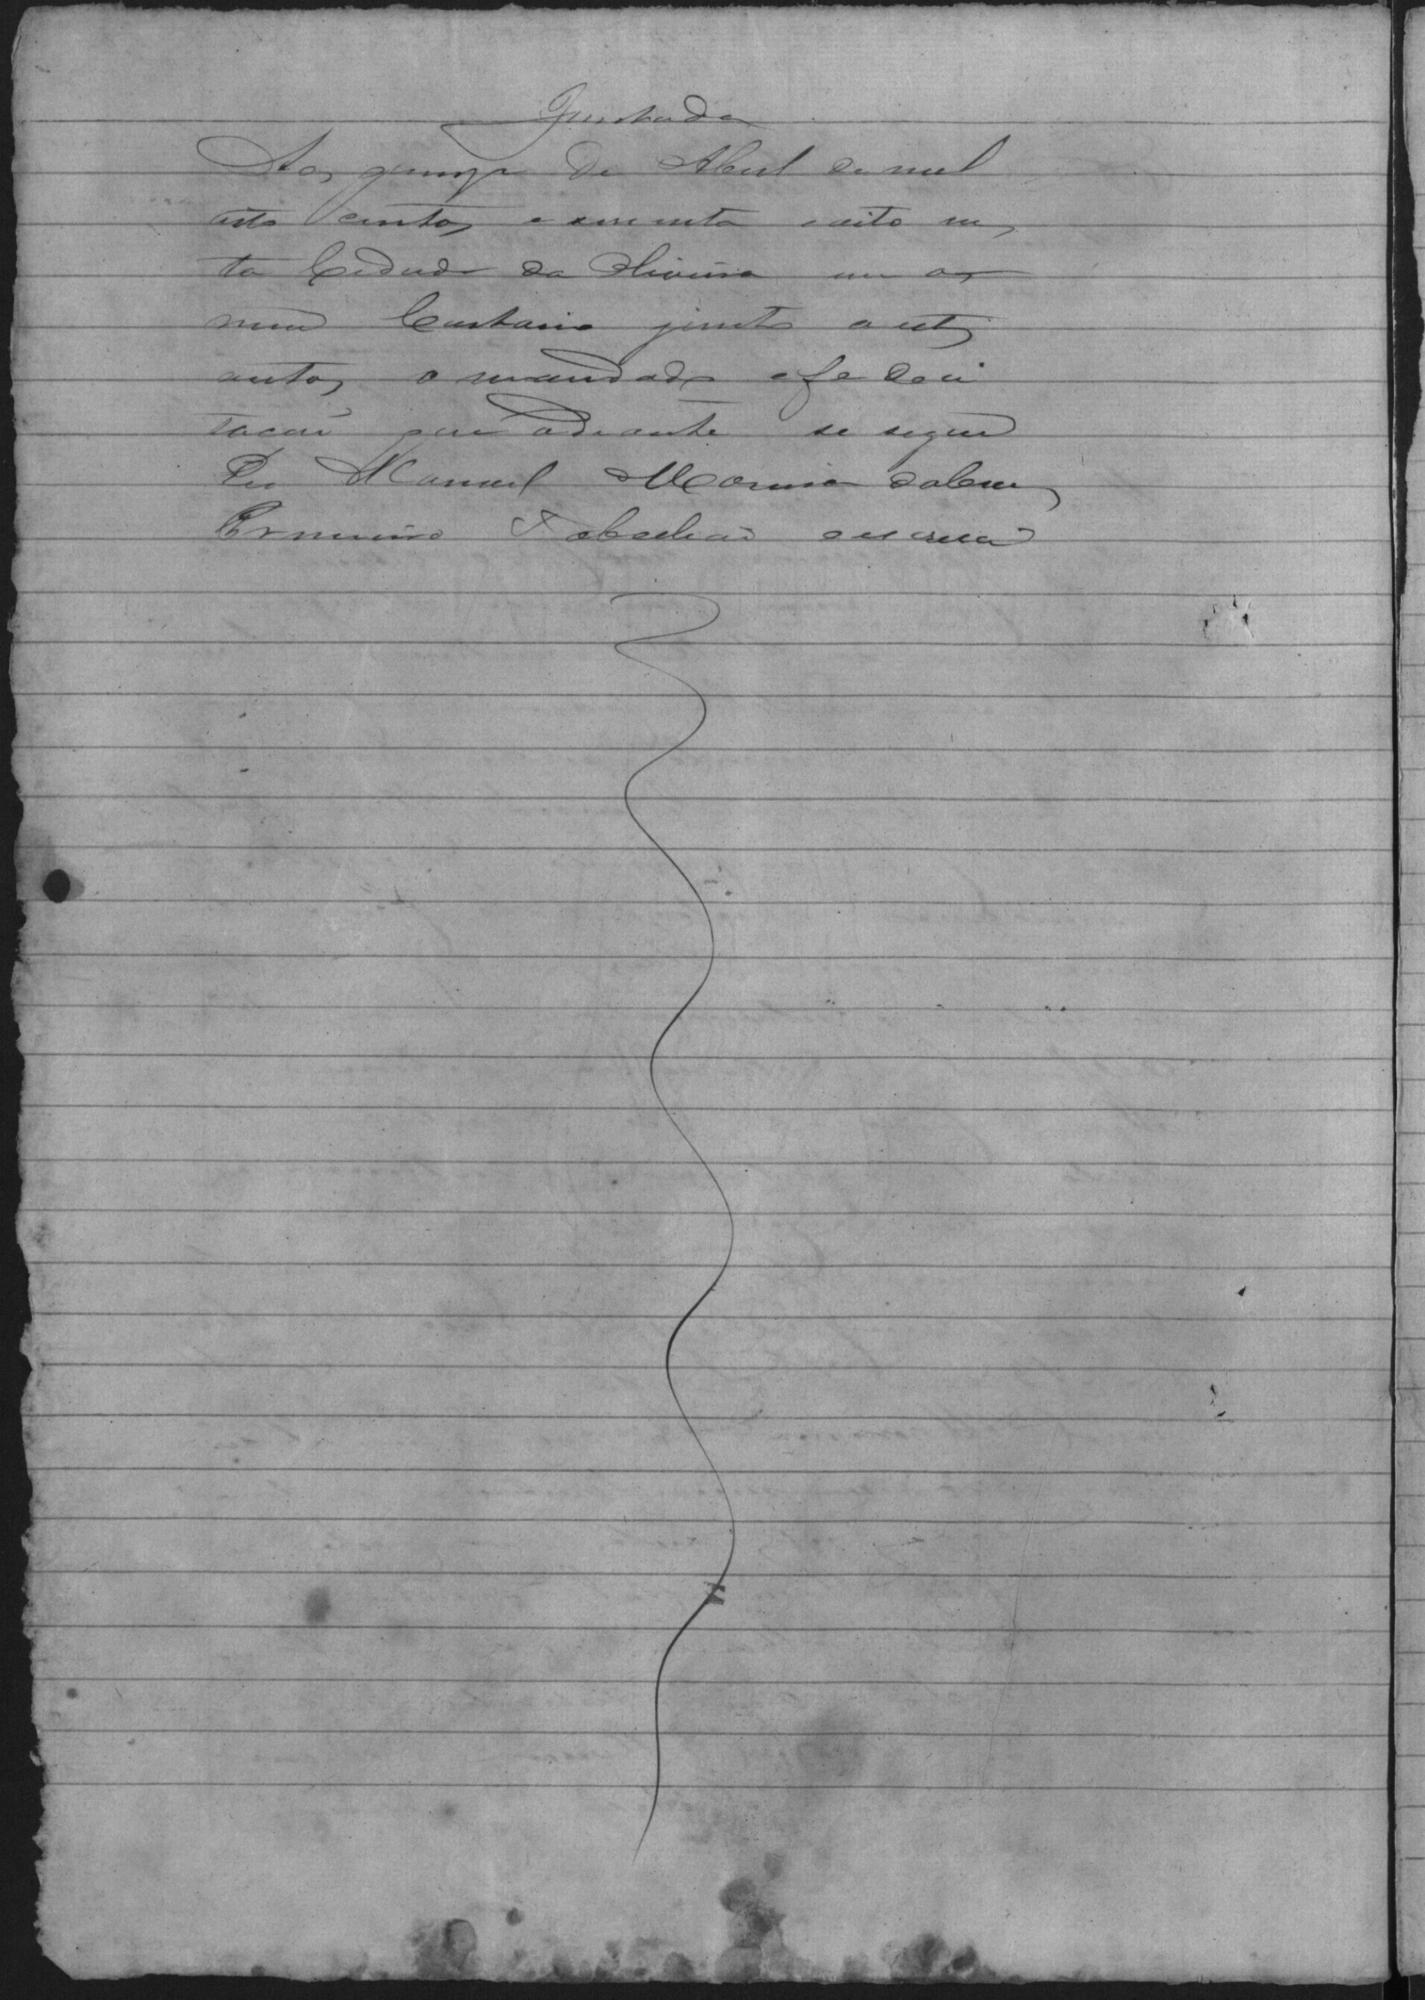 Juntada
Aos quinze de Abril de mil
oito centos e oitenta e oito nes
ta Cidade da Oliveira em o
meu Cartorio junto a estes
autos o mandado e fe de ci
tacão que adiante se segue
Eu Manoel
Primeiro Tabellião escrevi